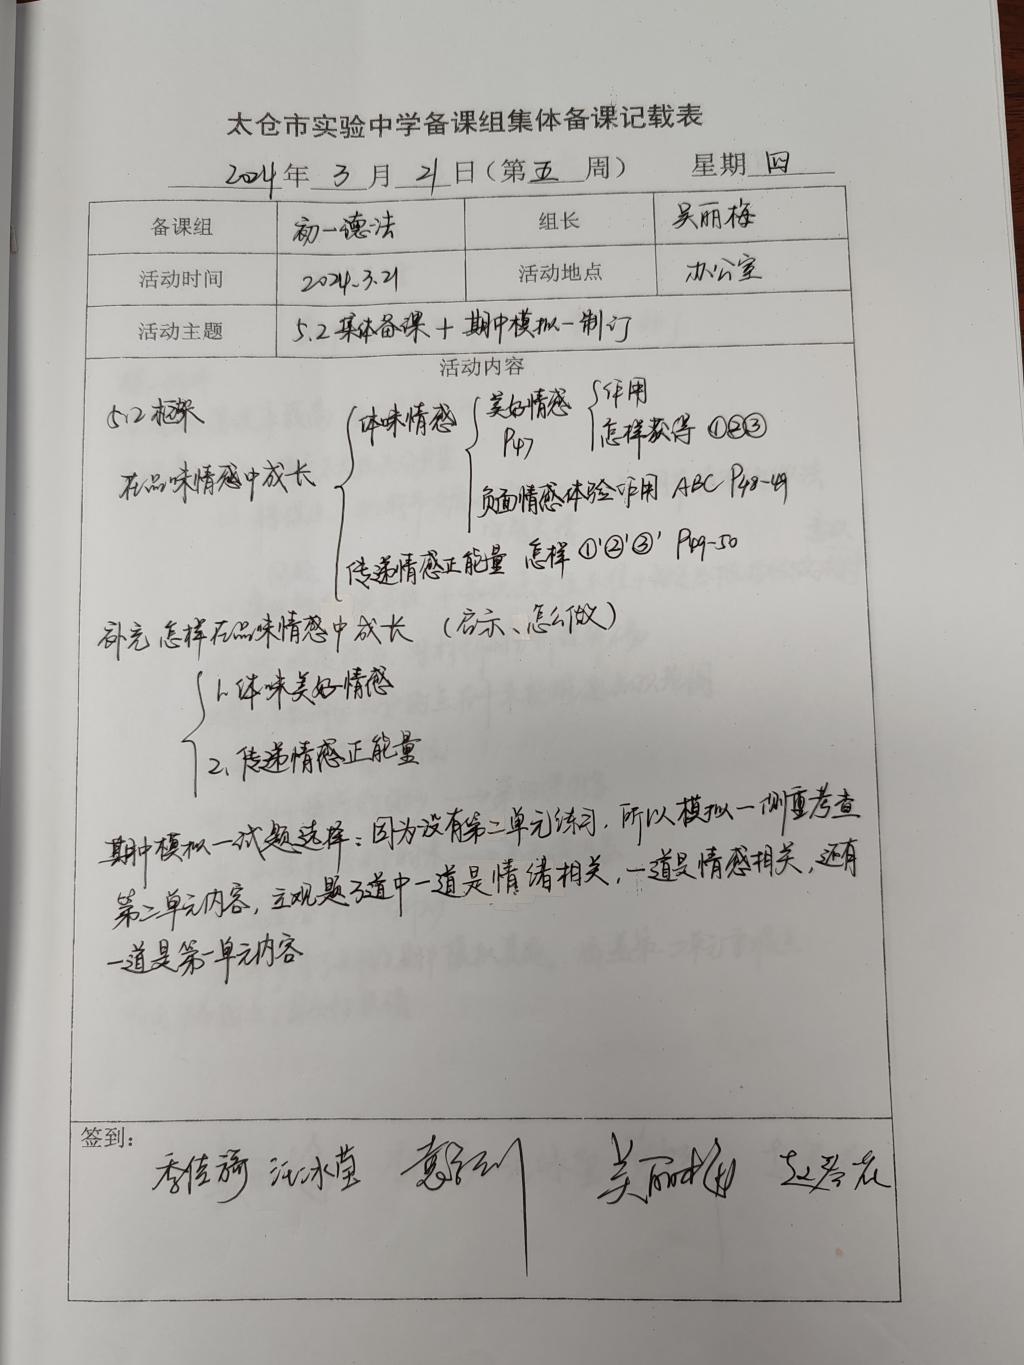 太仓市实验中学备课组集体备课记载表
2024年 3 月 21 日（第五 周） 星期 四
备课组 初一德法 组长 吴丽梅
活动时间 2024.3.21 活动地点 办公室
活动主题 5.2集体备课＋期中模拟一制订
活动内容
5.2框架
在品味情感中成长
体味情感
美好情感
P47
作用
怎样获得 ①②③
负面情感体验作用 ABC P48-49
传递情感正能量 怎样 ①'②'③' P49-50
补充 怎样在品味情感中成长 （启示、怎么做）
1、体味美好情感
2、传递情感正能量
期中模拟一试题选择：因为没有第二单元练习，所以模拟一侧重考查
第二单元内容，主观题3道中一道是情绪相关，一道是情感相关，还有
一道是第一单元内容
签到：
季佳 汪冰莹 吴丽梅